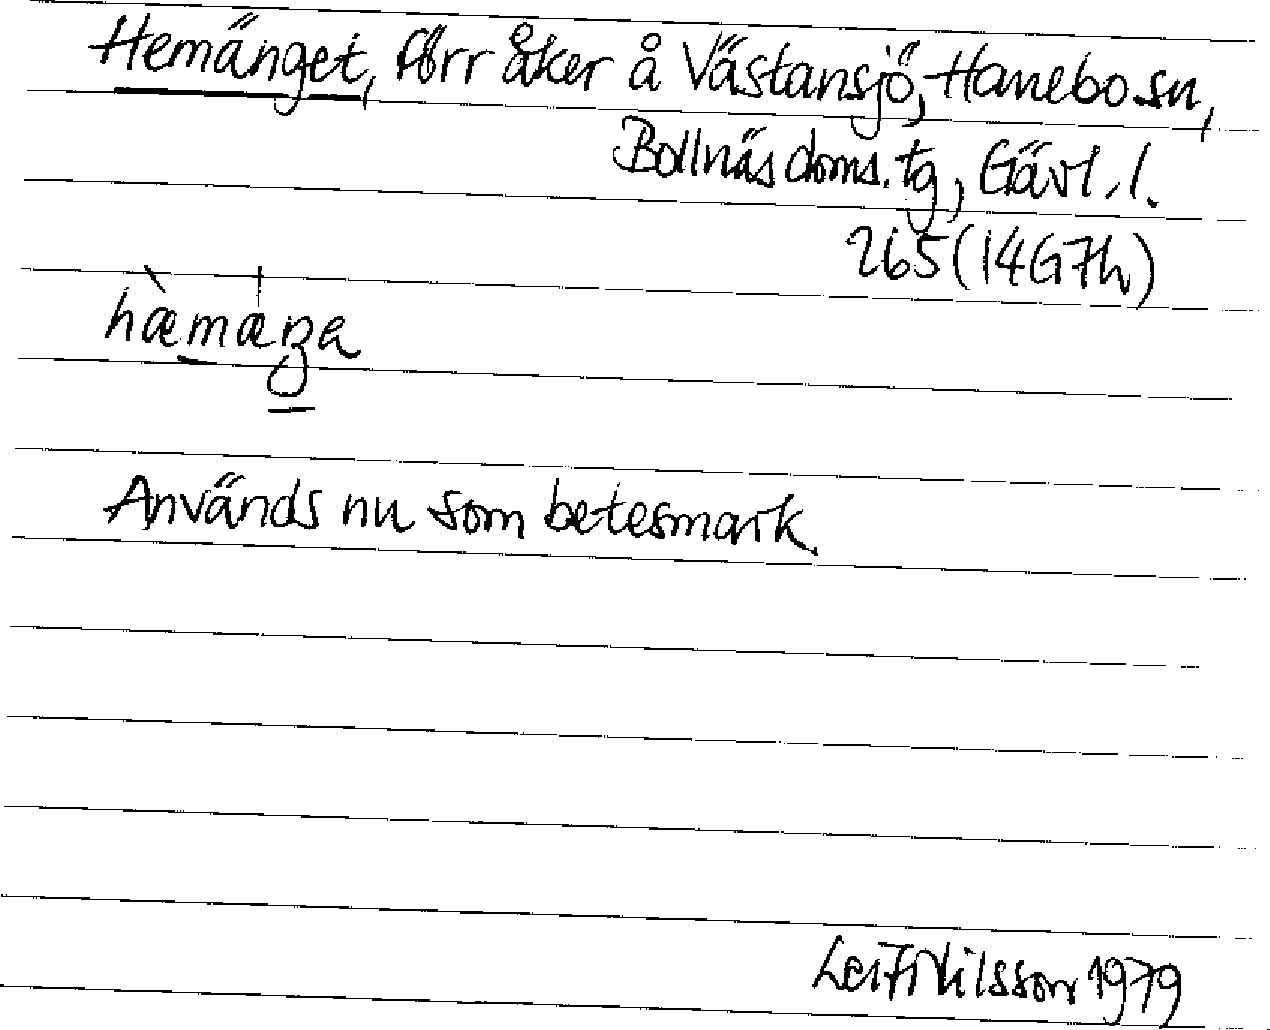 Hemänget, förr åker å Västansjö, Hanebo sn,
Bollnäs doms. tg, Gävl. l.
265 (14G7h)
hæ̀mæ̍ŋa
Används nu som betesmark.
Leif Nilsson 1979